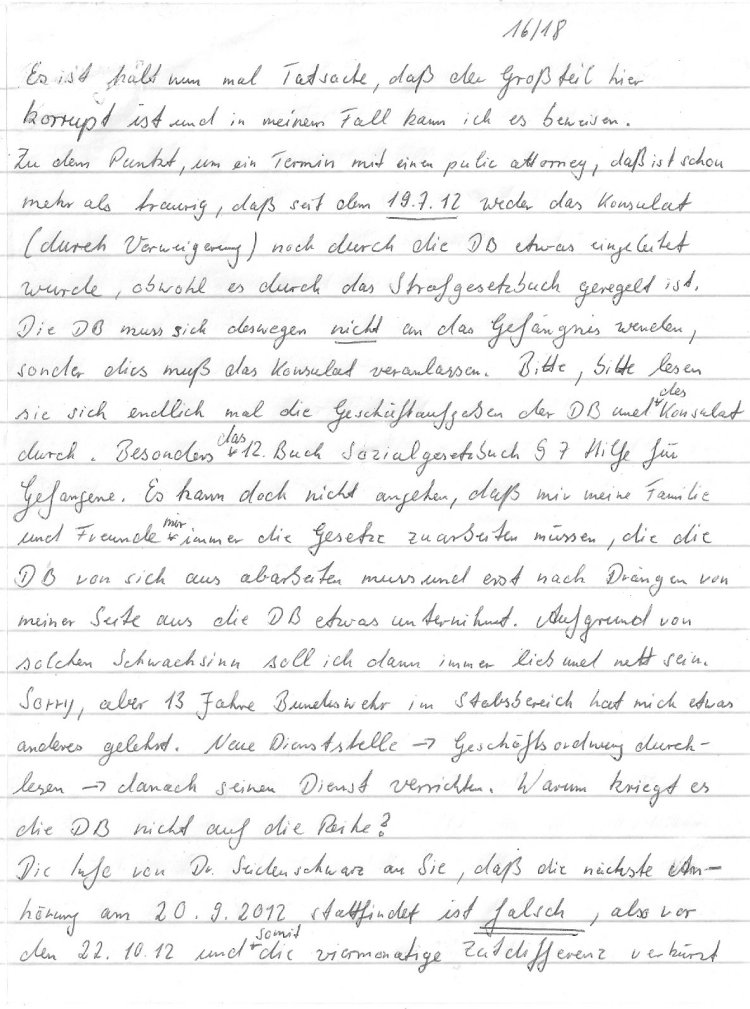 16/18
Es ist hält nun mal Tatsache, daß der Großteil hier
korrupt ist und in meinem Fall kann ich es beweisen.
Zu dem Punkt, um ein Termin mit einen pulic attorney, daß ist schon
mehr als traurig, daß seit dem 19.7.12 weder das Konsulat
(durch Verweigerung) noch durch die DB etwas eingeleitet
wurde, obwohl es durch das Strafgesetzbuch geregelt ist.
Die DB muss sich deswegen nicht an das Gefängnis wenden,
sonder dies muß das Konsulat veranlassen. Bitte, bitte lesen
sie sich endlich mal die Geschäftaufgaben der DB und des Konsulat
durch. Besonders das 12. Buch Sozialgesetzbuch § 7 Hilfe für
Gefangene. Es kann doch nicht angehen, daß mir meine Familie
und Freunde mir immer die Gesetze zuarbeiten müssen, die die
DB von sich aus abarbeiten muss und erst nach Drängen von
meiner Seite aus die DB etwas unternihmt. Aufgrund von
solchen Schwachsinn soll ich dann immer lieb und nett sein.
Sorry, aber 13 Jahre Bundeswehr im Stabsbereich hat mich etwas
anderes gelehrt. Neue Dienststelle → Geschäftsordnung durch-
lesen → danach seinen Dienst verrichten. Warum kriegt es
die DB nicht auf die Reihe?
Die Info von Dr. Seidenschwarz an Sie, daß die nächste An-
hörung am 20.9.2012 stattfindet ist falsch, also vor
den 22.10.12 und somit die viermonatige Zeitdifferenz verkürzt